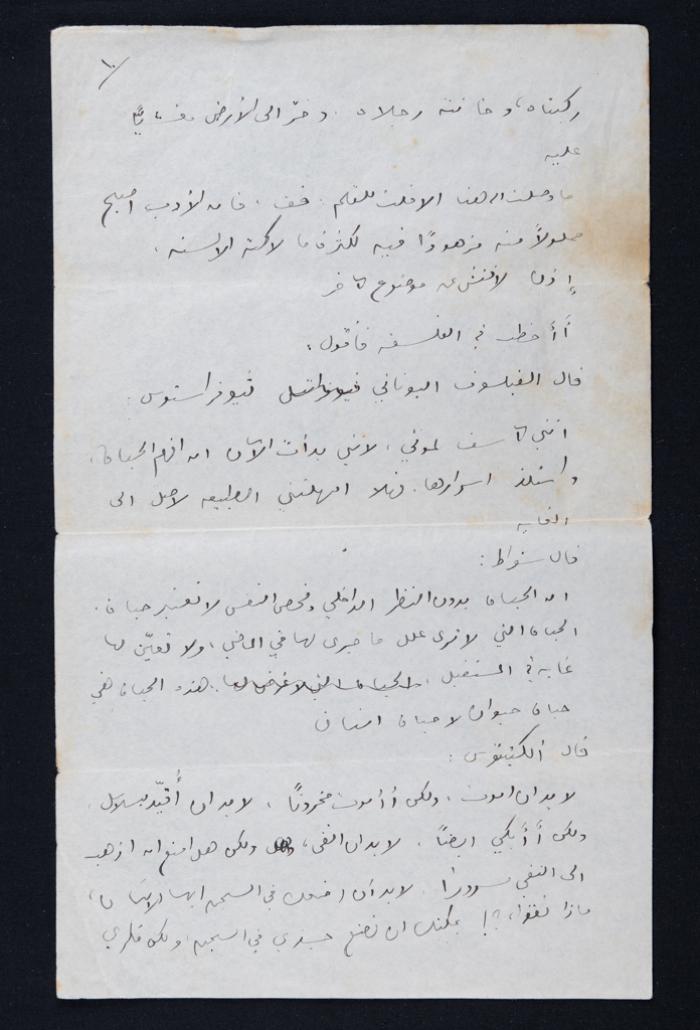 ١٠
ركبتاه، وخانته رجلاه. وخرّ الى الأرض مغشيًّا
عليه
ما وصلت الى هنا الا قلت للقلم: قف، فان الأدب اصبح
مملولاً منه مزهودًا فيه لكثرة ما لاكته الالسنه.
إذن لافتش عن موضوع آخر
أَأخطب في الفلسفه فأقول:
قال الفيلسوف اليوناني ثيوفراستوس:
انني آسف لموتي، لانني بدأت الآن ان افهم الحياة،
واستلذ اسرارها. فهلا امهلتني الطبيعه لاصل الى
الغايه
قال سقراط:
ان الحياة بدون النظر الداخلي وفحص النفس لا تعتبر حياة.
الحياة التي لا ترى علل ما جرى لها في الماضي، ولا تعيّن لها
غايه في المستقبل، الحياة التي لا غرض لها. هذه الحياة هي
حياة حيوان لا حياة انسان
قال ابكتيتوس:
لا بد ان اموت، ولكن أأموت محزونًا، لا بد ان أُقيّد بسلاسل،
ولكن أَأَبكي ايضًا. لا بد ان انفى، ولكن هل امنع ان اذهب
الى النفي مسرورًا. لا بد ان اضعك في السجن ايها الانسان،
ماذا تقول،؟! يمكنك ان تضع جسدي في السجن، ولكن فكري